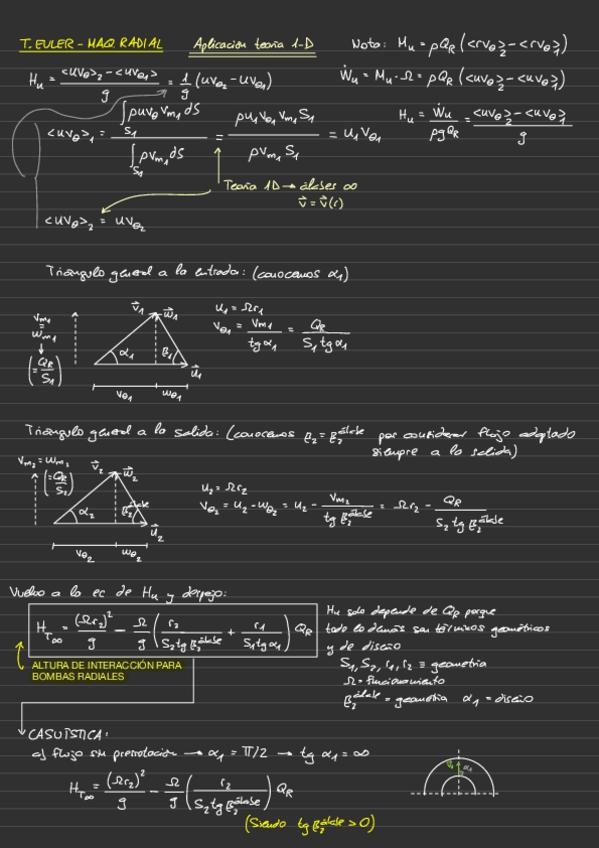 T. EULER - MAQ. RADIAL Aplicación teoría 1-D Nota: Mu = ρQR (<rvθ>2 - <rvθ>1)
Hu = (<uvθ>2 - <uvθ>1)/g = 1/g (uvθ2 - uvθ1) Ẇu = Mu · Ω = ρQR (<uvθ>2 - <uvθ>1)
<uvθ>1 = ∫S1 ρuvθ vm1 dS / ∫S1 ρvm1 dS = ρu1 vθ1 vm1 S1 / ρvm1 S1 = u1 vθ1 Hu = Ẇu/(ρgQR) = (<uvθ>2 - <uvθ>1)/g
Teoría 1D → álabes ∞
v⃗ = v⃗(r)
<uvθ>2 = uvθ2
Triángulo general a la entrada: (conocemos α1)
vm1 = wm1 (= QR/S1) v⃗1 w⃗1 α1 β1 u⃗1 vθ1 wθ1
u1 = Ωr1
vθ1 = vm1/tg α1 = QR/(S1 tg α1)
Triángulo general a la salida: (conocemos β2 = β2 álabe por considerar flujo adaptado
siempre a la salida)
vm2 = wm2 (= QR/S2) v⃗2 w⃗2 α2 β2 álabe u⃗2 vθ2 wθ2
u2 = Ωr2
vθ2 = u2 - wθ2 = u2 - vm2/tg β2 álabe = Ωr2 - QR/(S2 tg β2 álabe)
Vuelvo a la ec de Hu y despejo:
HT∞ = (Ωr2)²/g - Ω/g (r2/(S2 tg β2 álabe) + r1/(S1 tg α1)) QR
Hu solo depende de QR porque
todo lo demás son términos geométricos
y de diseño
S1, S2, r1, r2 ≡ geometría
Ω = funcionamiento
β2 álabe = geometría α1 = diseño
ALTURA DE INTERACCIÓN PARA
BOMBAS RADIALES
CASUÍSTICA:
a) flujo sin prerrotación → α1 = π/2 → tg α1 = ∞
HT∞ = (Ωr2)²/g - Ω/g (r2/(S2 tg β2 álabe)) QR
v1 α1
(Siendo tg β2 álabe > 0)